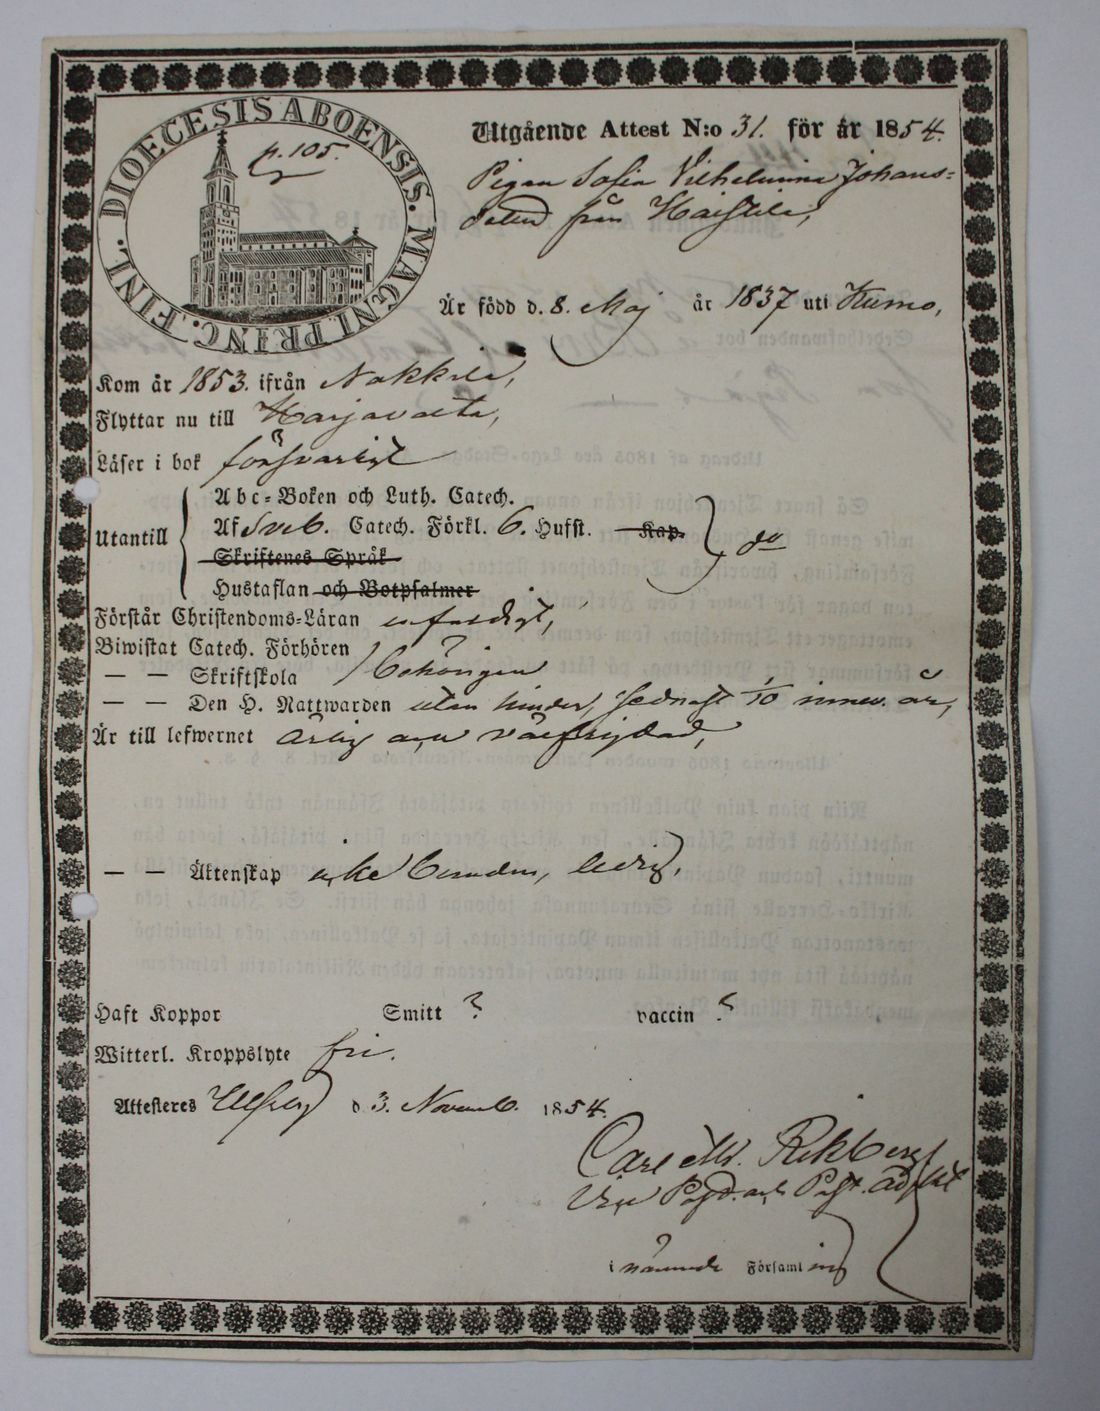 DIOECESIS ABOENSIS. MAGNI. PRINC. FINL.
p. 105.
Utgående Attest N:o 31. för år 1854.
Pigan Sofia Vilhelmina Johans-
dotter från Haistila,
Är född d. 8. Maj år 1837 uti Kumo,
Kom år 1853. ifrån Nakkila,
Flyttar nu till Harjavalta,
Läser i bok försvarligt
Abc-Boken och Luth. Catech.
Utantill Af Sveb. Catech. Förkl. 6. Hufst. Kap. do
Skriftenes Språk
Hustaflan och Botpsalmer
Förstår Christendoms-Läran enfaldigt,
Biwistat Catech. Förhören
— — Skriftskola behörigen
— — Den H. Nattwarden utan hinder, sednast innev. år,
Är till lefwernet ärlig och välfrejdad,
— — Äktenskap icke bunden, ledig.
Haft Koppor Smitt ? vaccin ?
Witterl. Kroppslyte fri.
Attesteras Ulfsby d. 3. Novemb. 1854.
Carl M. Rekberg
Vice Past. adj.
i nämnde Församling